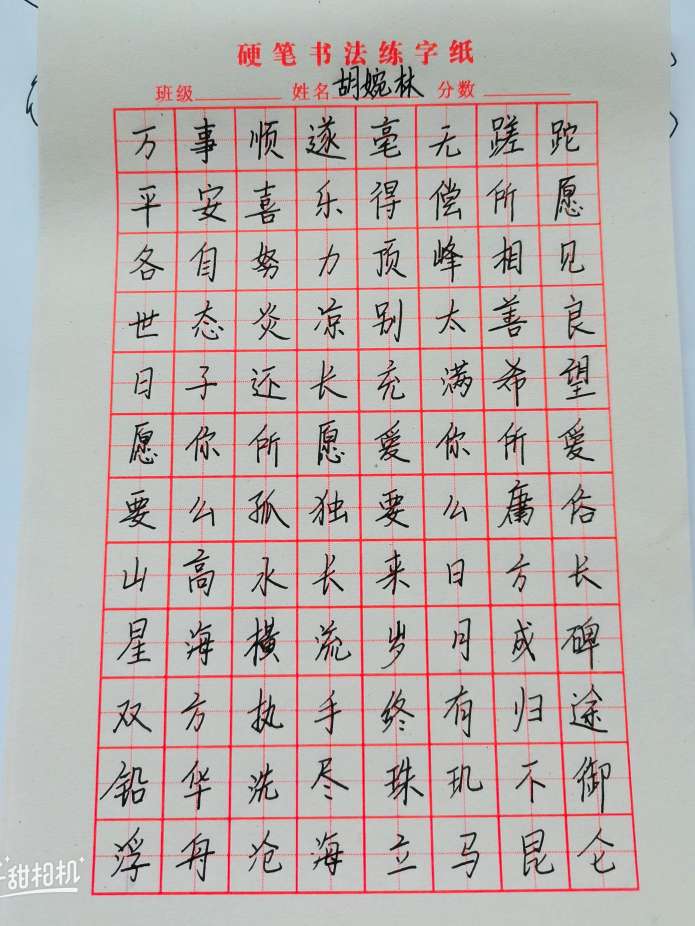 硬笔书法练字纸
班级 姓名 胡婉林 分数
万事顺遂毫无蹉跎
平安喜乐得偿所愿
各自努力顶峰相见
世态炎凉别太善良
日子还长充满希望
愿你所愿爱你所爱
要么孤独要么庸俗
山高水长来日方长
星海横流岁月成碑
双方执手终有归途
铅华洗尽珠玑不御
浮舟沧海立马昆仑
甜相机